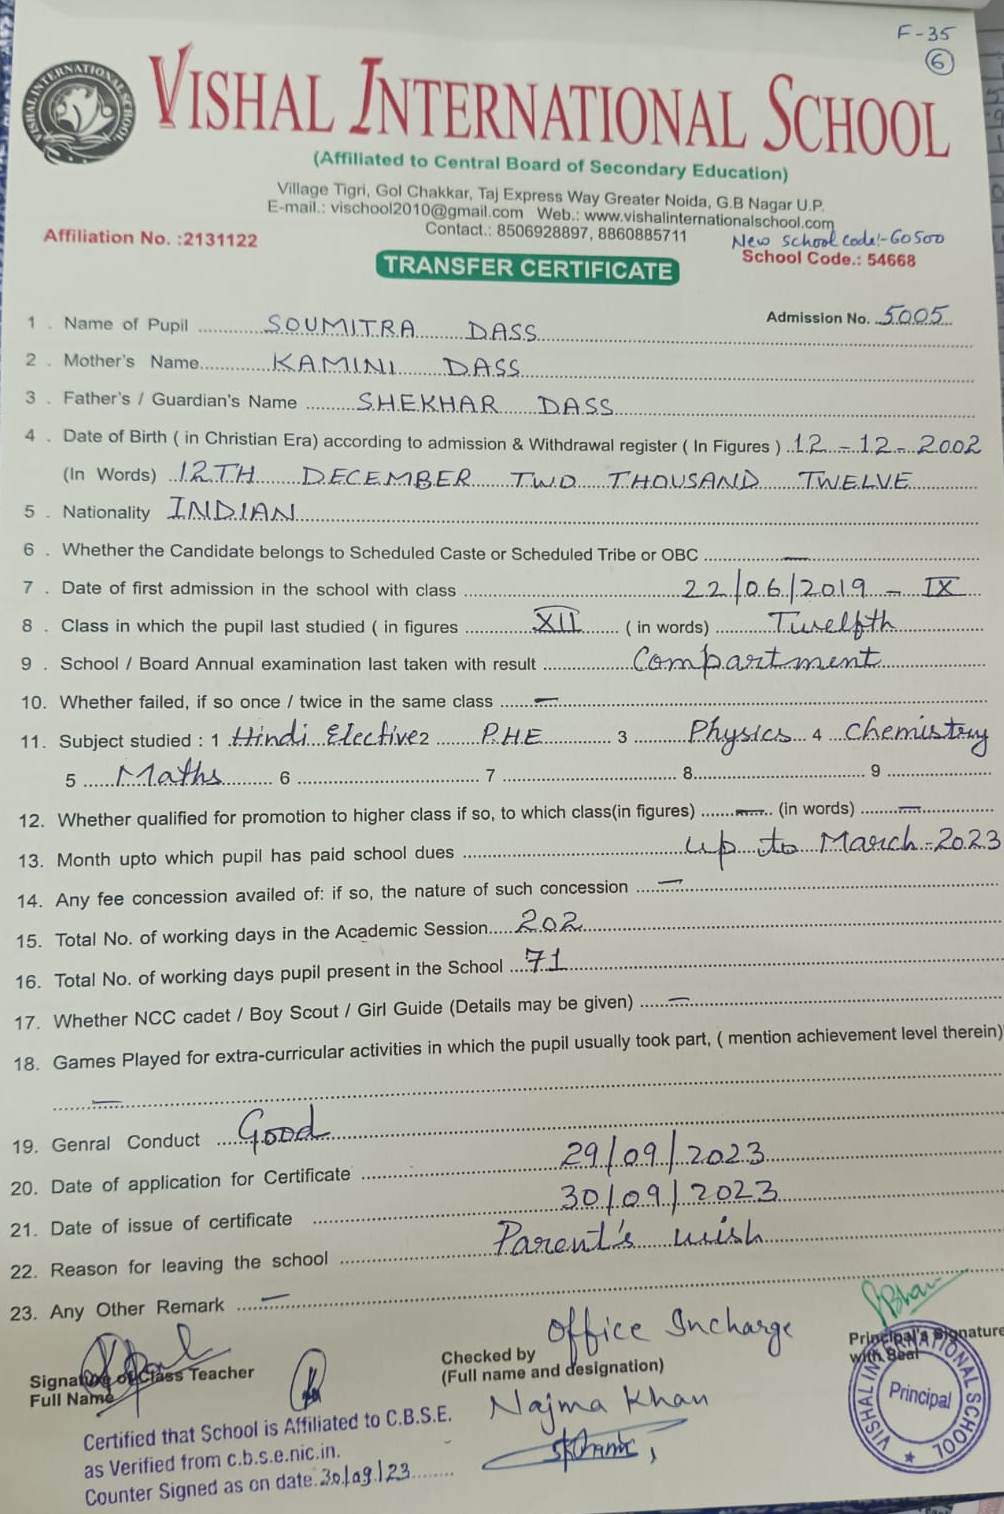 F-35
6
VISHAL INTERNATIONAL SCHOOL
VISHAL INTERNATIONAL SCHOOL
(Affiliated to Central Board of Secondary Education)
Village Tigri, Gol Chakkar, Taj Express Way Greater Noida, G.B Nagar U.P.
E-mail.: vischool2010@gmail.com Web.: www.vishalinternationalschool.com
Contact.: 8506928897, 8860885711
New school code:-60500
Affiliation No. :2131122
School Code.: 54668
TRANSFER CERTIFICATE
Admission No. 5005
1 . Name of Pupil SOUMITRA DASS
2 . Mother's Name KAMINI DASS
3 . Father's / Guardian's Name SHEKHAR DASS
4 . Date of Birth ( in Christian Era) according to admission & Withdrawal register ( In Figures ) 12-12-2002
(In Words) 12TH DECEMBER TWO THOUSAND TWELVE
5 . Nationality INDIAN
6 . Whether the Candidate belongs to Scheduled Caste or Scheduled Tribe or OBC —
7 . Date of first admission in the school with class 22/06/2019 - IX
8 . Class in which the pupil last studied ( in figures XII ( in words) Twelfth
9 . School / Board Annual examination last taken with result Compartment
10. Whether failed, if so once / twice in the same class —
11. Subject studied : 1 Hindi Elective 2 P.H.E 3 Physics 4 Chemistry
5 Maths 6 7 8 9
12. Whether qualified for promotion to higher class if so, to which class(in figures) — (in words) —
13. Month upto which pupil has paid school dues up to March-2023
14. Any fee concession availed of: if so, the nature of such concession —
15. Total No. of working days in the Academic Session 202
16. Total No. of working days pupil present in the School 71
17. Whether NCC cadet / Boy Scout / Girl Guide (Details may be given) —
18. Games Played for extra-curricular activities in which the pupil usually took part, ( mention achievement level therein)
—
19. Genral Conduct Good
20. Date of application for Certificate 29/09/2023
21. Date of issue of certificate 30/09/2023
22. Reason for leaving the school Parent's wish
23. Any Other Remark —
Office Incharge
Signature of Class Teacher
Full Name
Checked by
(Full name and designation)
Najma Khan
Principal's Signature
with Seal
VISHAL INTERNATIONAL SCHOOL
Principal
Certified that School is Affiliated to C.B.S.E.
as Verified from c.b.s.e.nic.in.
Counter Signed as on date. 30/09/23